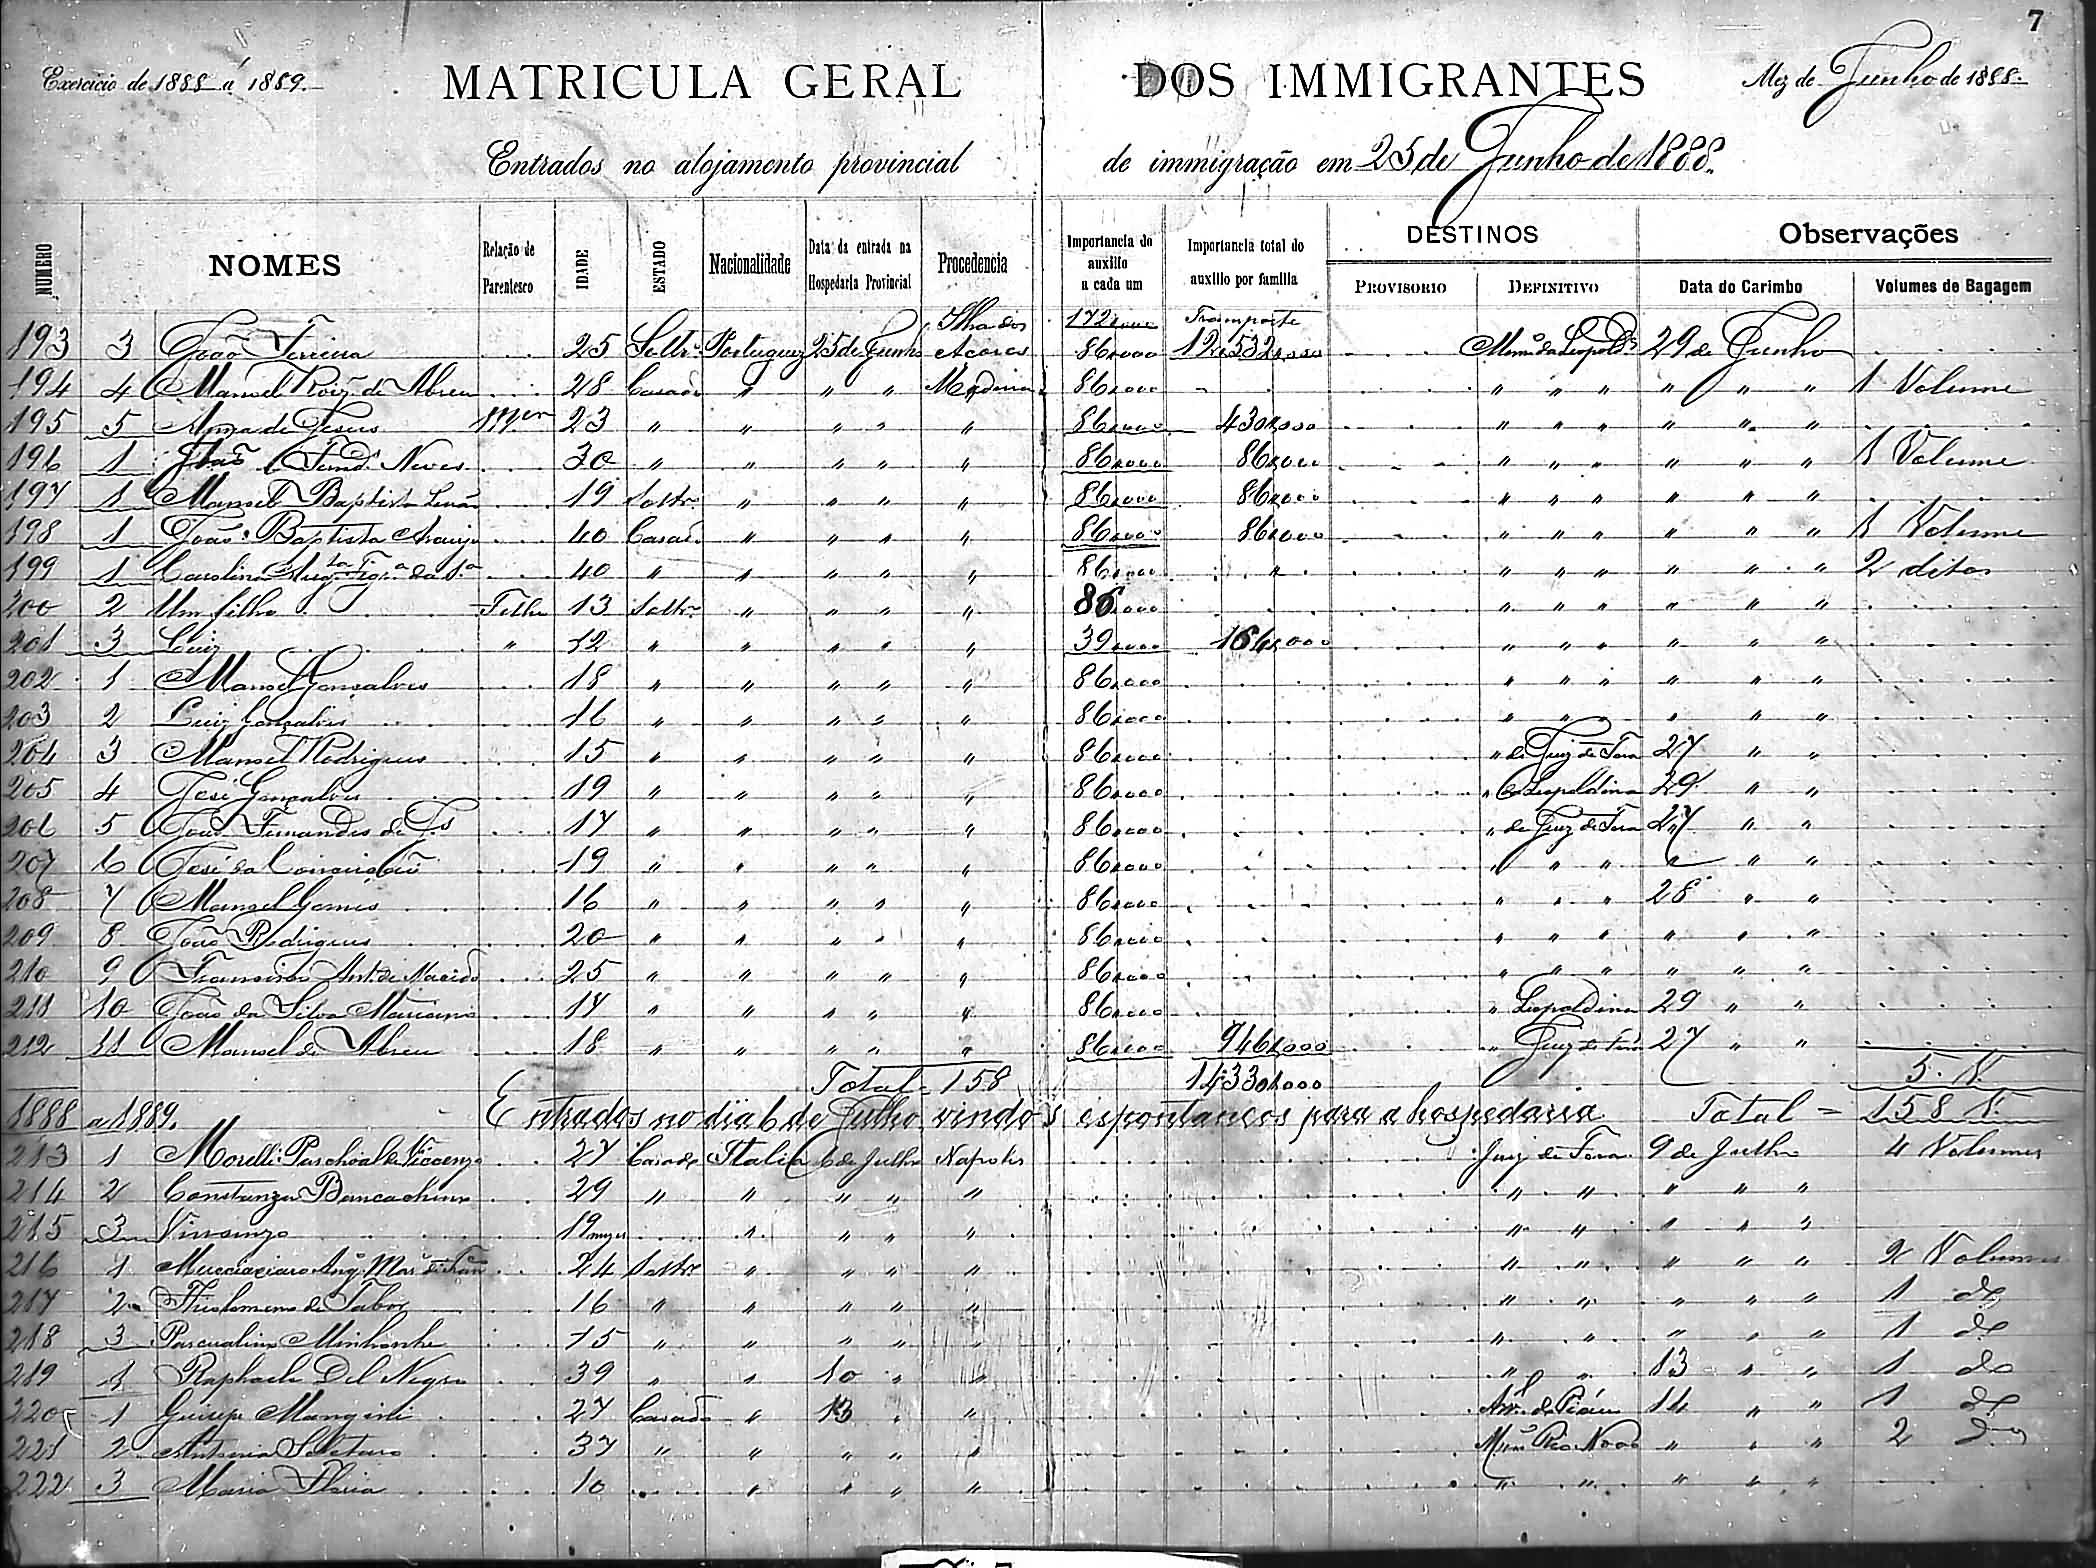 7
Exercicio de 1888 á 1889. MATRICULA GERAL DOS IMMIGRANTES Mez de Junho de 1888.
Entrados no alojamento provincial de immigração em 25 de Junho de 1888.
NUMERO NOMES Relação de Parentesco IDADE ESTADO Nacionalidade Data da entrada na Hospedaria Provincial Procedencia Importancia do auxilio a cada um Importancia total do auxilio por familia DESTINOS Observações
PROVISORIO DEFINITIVO Data do Carimbo Volumes de Bagagem
Ilha dos 172.000 Transporte
193 3 João Ferreira 25 Soltrº Portuguez 25 de Junho Açores 86.000 12.532.000 29 de Junho
194 4 Manoel Roiz de Abreu 28 Casado " " " Madeira 86.000 " " " " " " 1 Volume
195 5 Anna de Jesus 23 " " " " " 86.000 430.000 " " " " " "
196 1 João Fernd. Neves 30 " " " " " 86.000 86.000 " " " " " " 1 Volume
197 1 Manoel Baptista 19 Soltrº " " " " 86.000 86.000 " " " " " "
198 1 João Baptista Araujo 40 Casado " " " " 86.000 86.000 " " " " " " 1 Volume
199 1 Carolina 40 " " " " " 86.000 " " " " " " " 2 ditos
200 2 Um filho Filho 13 Soltrº " " " " 86.000 " " " " " "
201 3 Luiz " 12 " " " " " 39.000 164.000 " " " " " "
202 1 Manoel Gonsalves 18 " " " " " 86.000 " " " " " "
203 2 Luiz Gonçalves 16 " " " " " 86.000 " " " " " "
204 3 Manoel Rodrigues 15 " " " " " 86.000 " de Juiz de Fora 27 " "
205 4 José Gonçalves 19 " " " " " 86.000 " Leopoldina 29 " "
206 5 João Fernandes de 17 " " " " " 86.000 " de Juiz de Fora 27 " "
207 6 José da Conceição 19 " " " " " 86.000 " " " " " "
208 7 Manoel Gomes 16 " " " " " 86.000 " " " 28 " "
209 8 João Rodrigues 20 " " " " " 86.000 " " " " " "
210 9 Francisco Ant. de Macedo 25 " " " " " 86.000 " " " " " "
211 10 João da Silva 17 " " " " " 86.000 " Leopoldina 29 " "
212 11 Manoel de Abreu 18 " " " " " 86.000 946.000 " Juiz de Fora 27 " "
Total = 158 14.330.000 5. V.
1888 a 1889. Entrados no dia 6 de Julho vindos espontaneos para a hospedaria Total = 158 V.
213 1 Morelli Paschoal de Viccenzo 27 Casado Italia 6 de Julho Napoles Juiz de Fora 9 de Julho 4 Volumes
214 2 Constanza 29 " " " " " " " " " "
215 3 Vincenzo 19 mezes " " " " " " " " "
216 1 24 Soltrº " " " " " " " " " 2 Volumes
217 2 de Tabor 16 " " " " " " " " " " 1 do
218 3 Pascualina 15 " " " " " " " " " " 1 do
219 1 Raphaele Del Negro 39 " " 10 " " " " 13 " " 1 do
220 1 Guisepe Mangini 27 Casado " 13 " " 14 " " 1 do
221 2 Antonia 37 " " " " " Rio Novo " " " 2 do
222 3 Maria 10 " " " " " " " " "